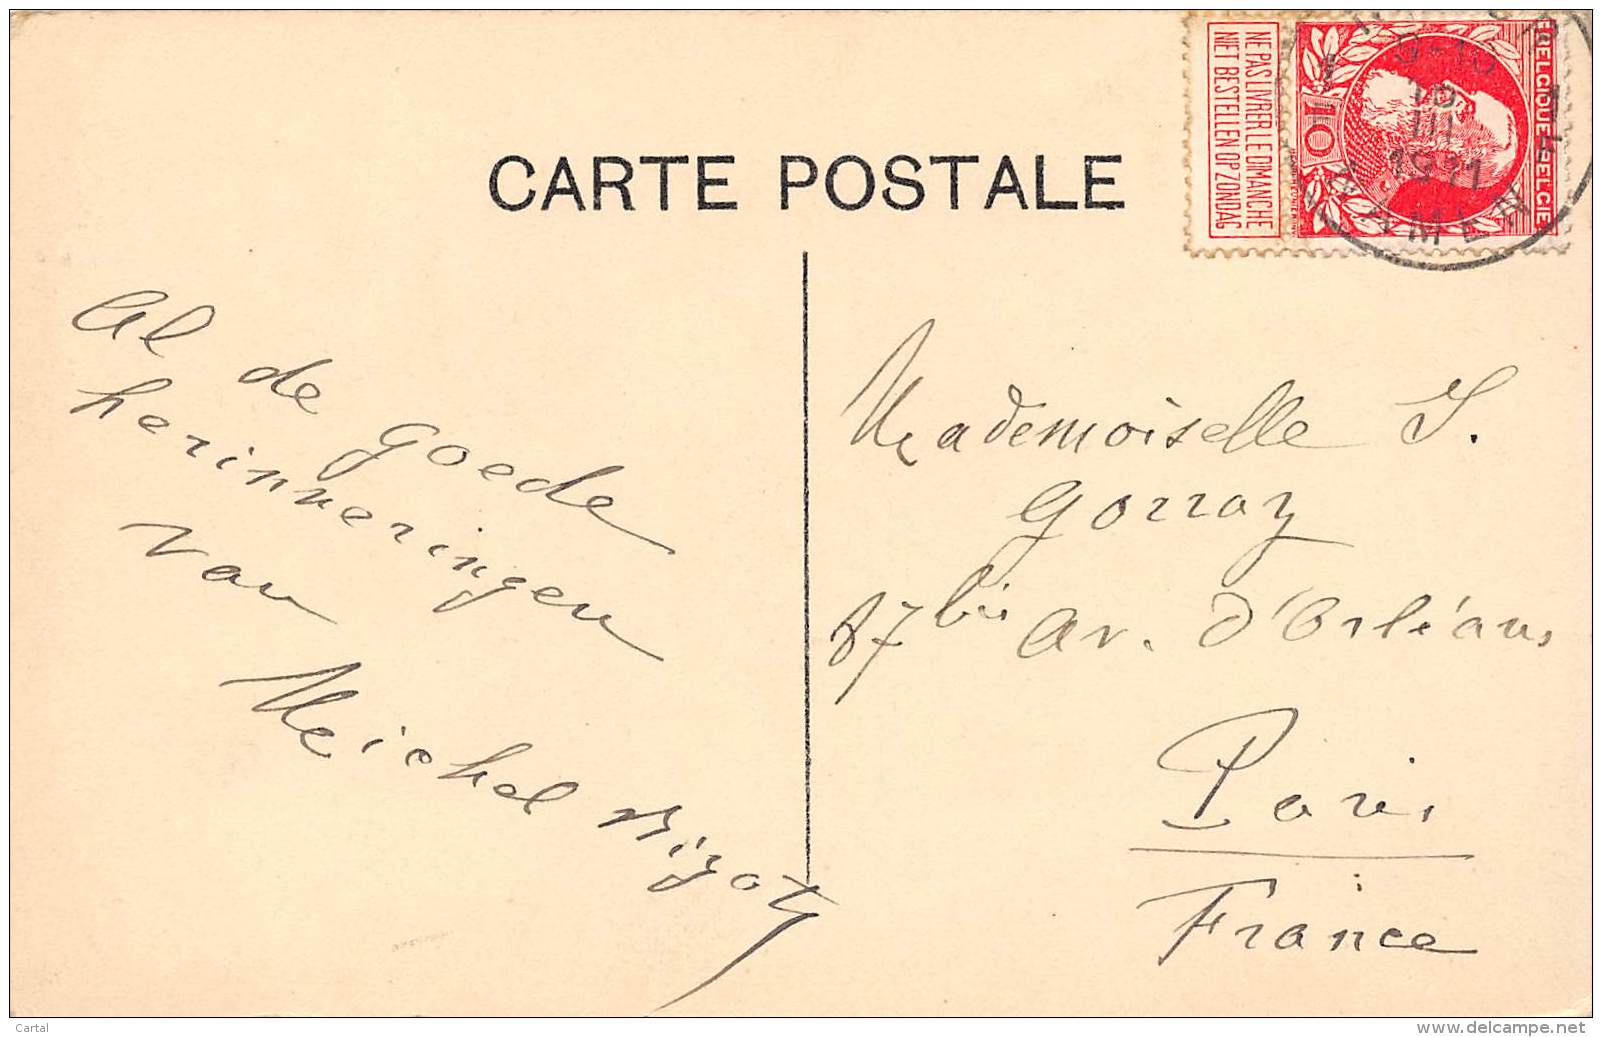 CARTE POSTALE
NE PAS LIVRER LE DIMANCHE
NIET BESTELLEN OP ZONDAG
BELGIQUE BELGIE
10
9-10
III
1911
NAMEN
Al de goede
herinneringen
van
Meichel
Mademoiselle S.
Gorray
87 bis av. d'Orléans
Paris
France
Cartal
www.delcampe.net